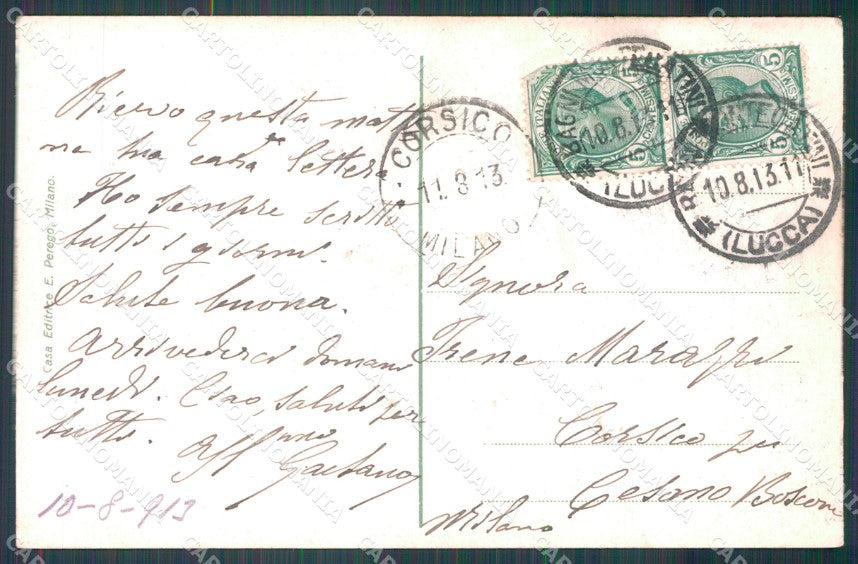 Ricevo questa matti
na tua cara lettera
Ho sempre scritto
tutti i giorni.
Salute buona.
Arrivederci domani
lunedi. Ciao, saluti per
tutti.
Aff.mo
Gaetano
10-8-913
Casa Editrice E. Perego, Milano.
CORSICO
11.8.13.
MILANO
BAGNI
10.8.13
(LUCCA)
10.8.13.11
(LUCCA)
5
5
Signora
Irene Marazzi
Corsico per
Cesano Boscone
Milano
CARTOLINOMANIA